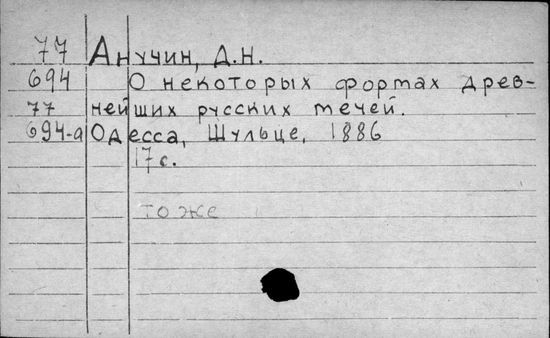 77 Анучин, Д.Н.
694 О некоторых формах древ-
77 нейших русских мечей.
694-а Одесса, Шульце, 1886
17 с.
то же